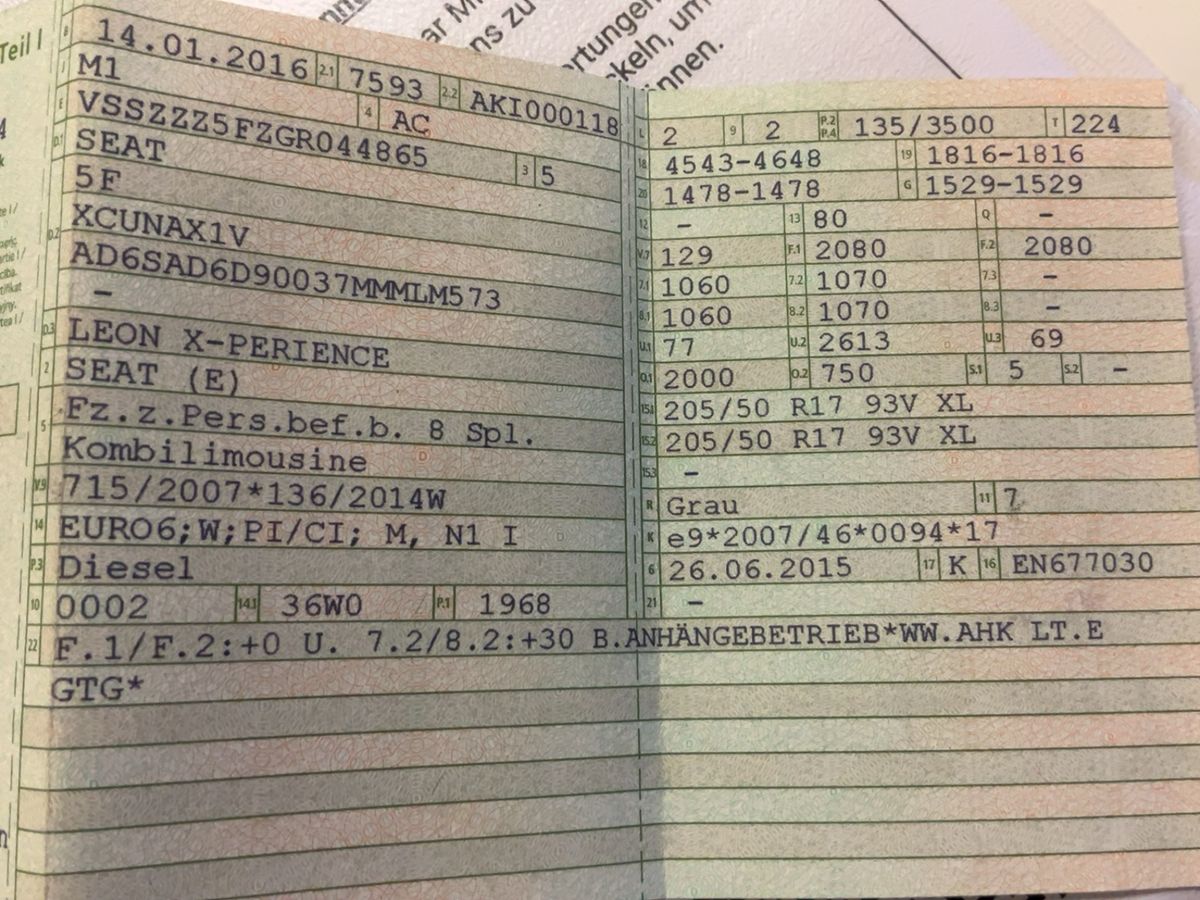 Teil I
B 14.01.2016 2.1 7593 2.2 AKI000118
J M1 4 AC
E VSSZZZ5FZGR044865 3 5
D.1 SEAT
5F
D.2 XCUNAX1V
AD6SAD6D90037MMMLM573
–
D.3 LEON X-PERIENCE
2 SEAT (E)
5 Fz.z.Pers.bef.b. 8 Spl.
Kombilimousine
V.9 715/2007*136/2014W
14 EURO6;W;PI/CI; M, N1 I
P.3 Diesel
10 0002 14.1 36W0 P.1 1968
L 2 9 2 P.2 P.4 135/3500 T 224
18 4543-4648 19 1816-1816
20 1478-1478 G 1529-1529
12 – 13 80 Q –
V.7 129 F.1 2080 F.2 2080
7.1 1060 7.2 1070 7.3 –
8.1 1060 8.2 1070 8.3 –
U.1 77 U.2 2613 U.3 69
O.1 2000 O.2 750 S.1 5 S.2 –
15.1 205/50 R17 93V XL
15.2 205/50 R17 93V XL
15.3 –
R Grau 11 7
K e9*2007/46*0094*17
6 26.06.2015 17 K 16 EN677030
21 –
22 F.1/F.2:+0 U. 7.2/8.2:+30 B.ANHÄNGEBETRIEB*WW.AHK LT.E
GTG*